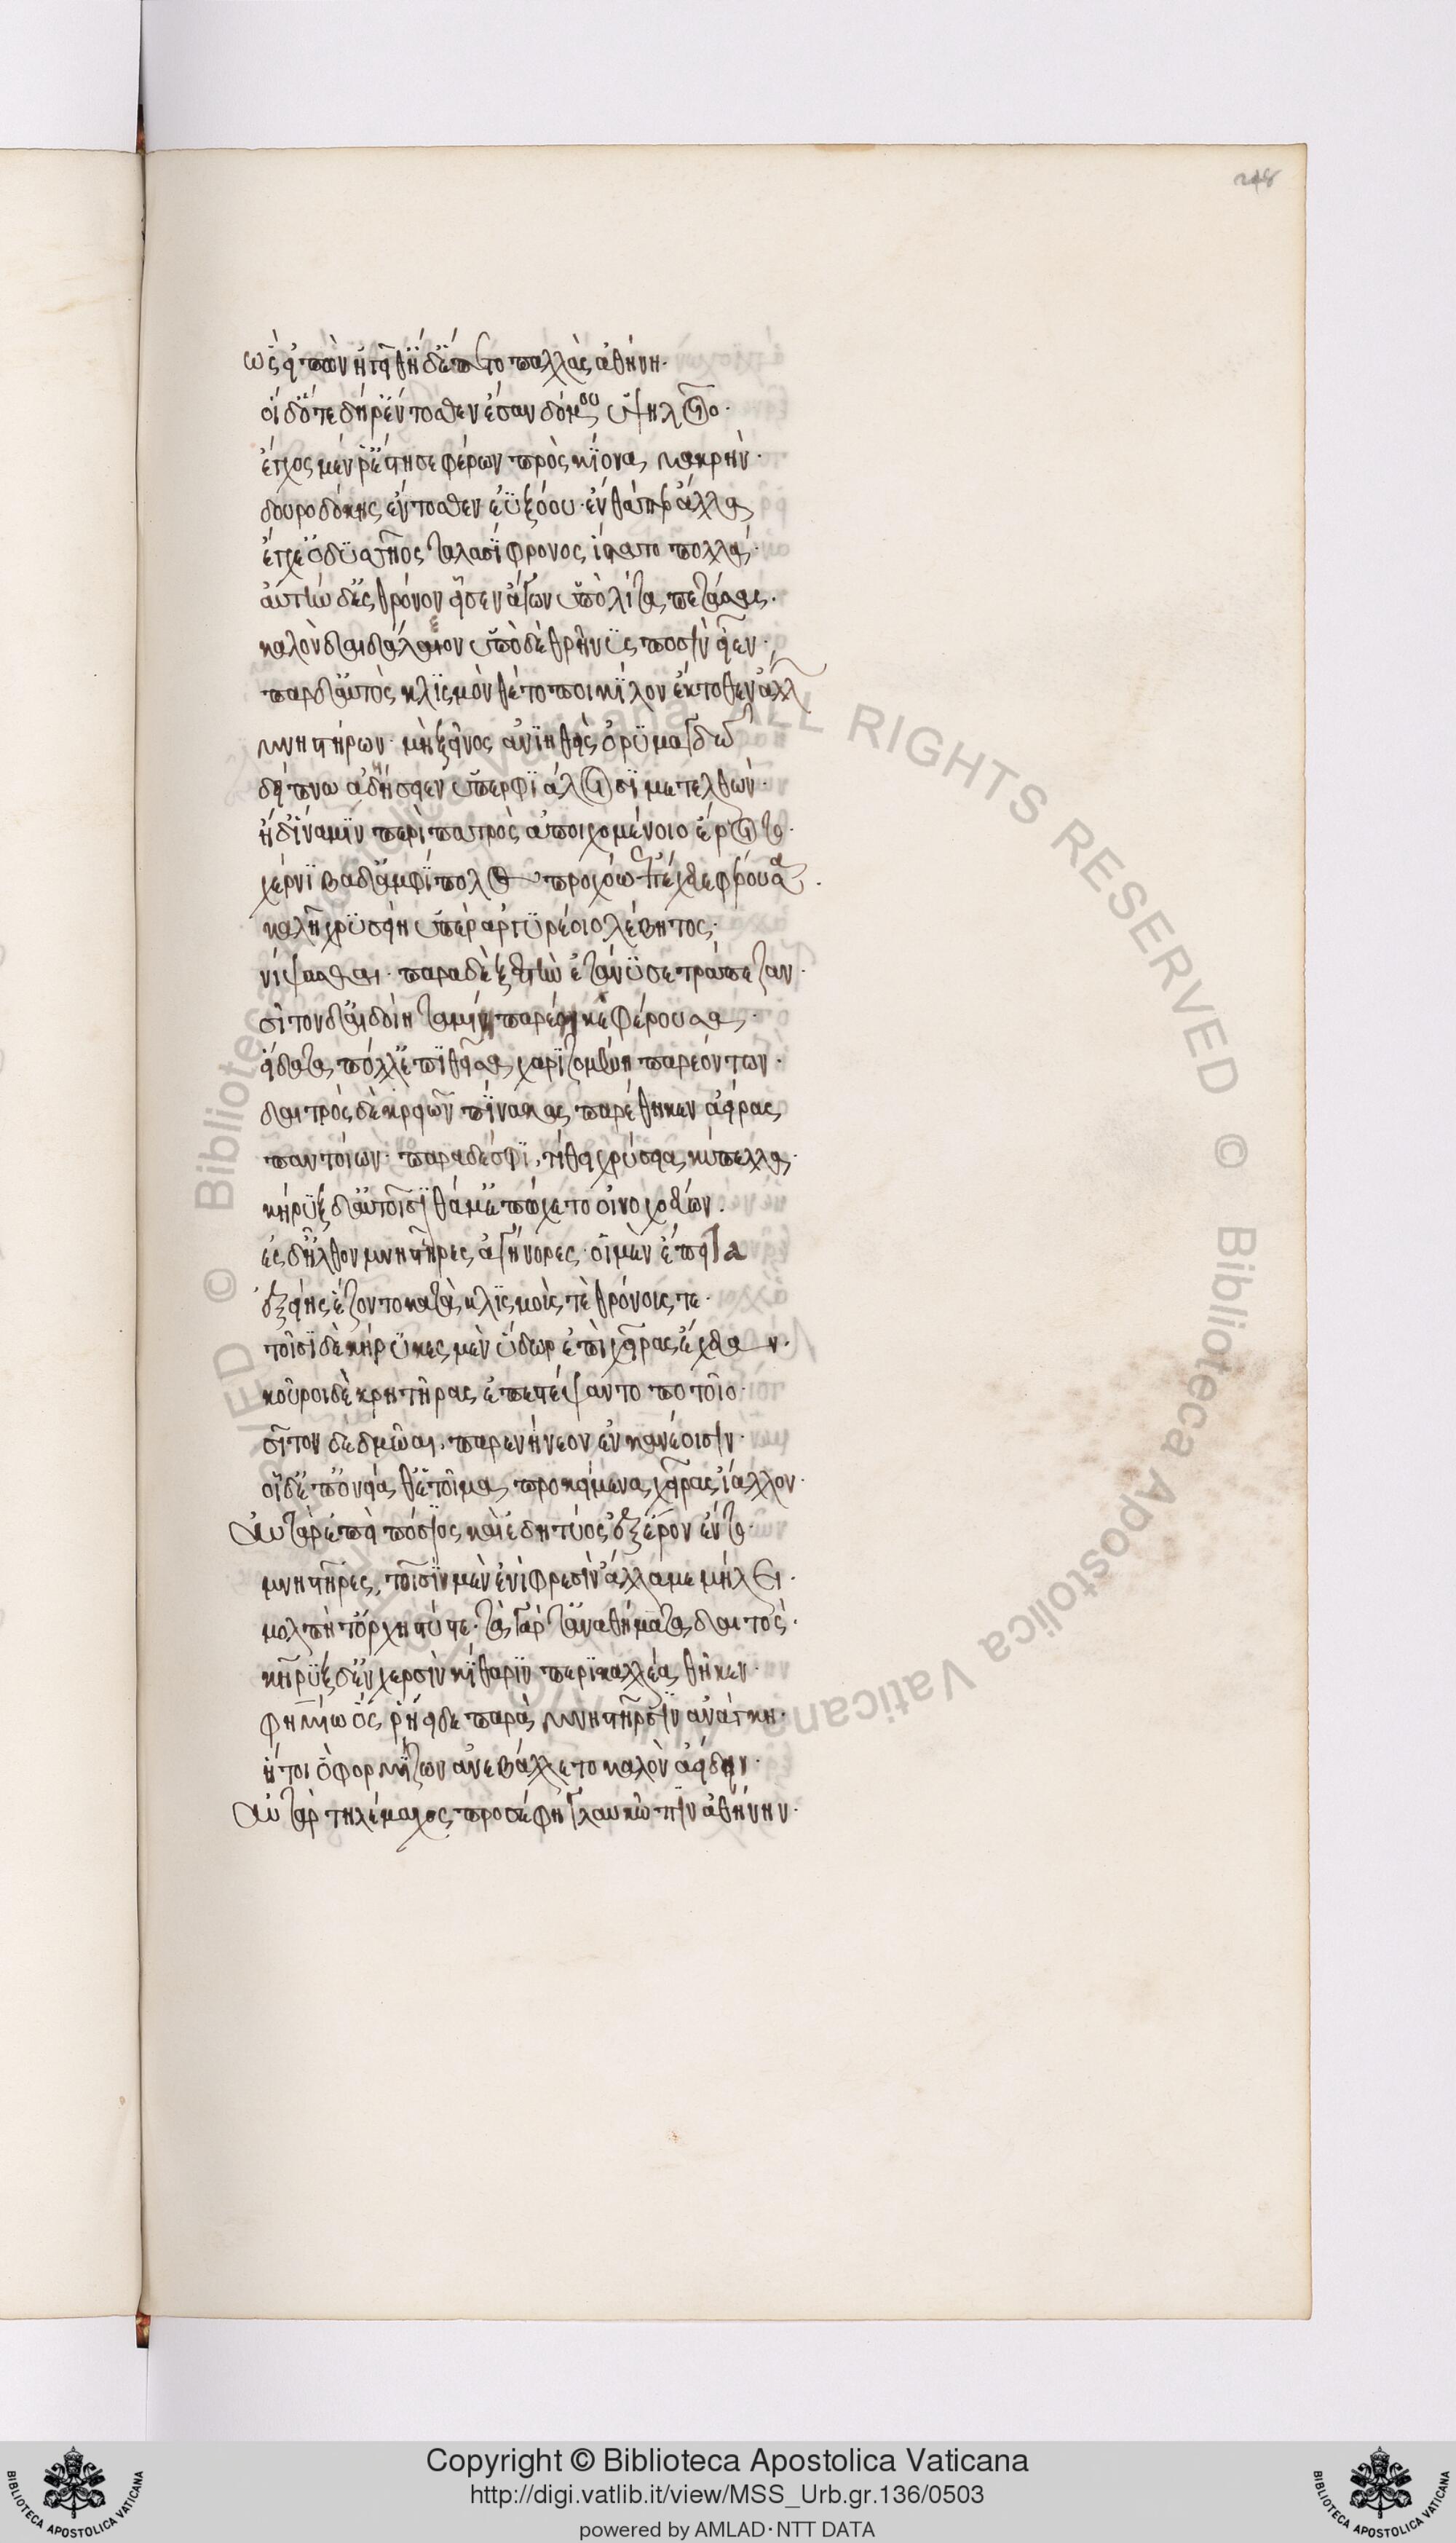 248
ὡς εἰπὼν ἡγεῖθ' ἡ δ' ἕσπετο παλλὰς ἀθήνη·
οἱ δ' ὅτε δή ῥ' ἔντοσθεν ἔσαν δόμου ὑψηλοῖο·
ἔγχος μέν ῥ' ἔστησε φέρων πρὸς κίονα μακρὴν·
δουροδόκης ἔντοσθεν ἐϋξόου· ἔνθά περ ἄλλα
ἔγχε' ὀδυσσῆος ταλασίφρονος ἵστατο πολλά·
αὐτὴν δ' ἐς θρόνον εἷσεν ἄγων ὑπὸ λίτα πετάσσας·
καλὸν δαιδάλεον ὑπὸ δὲ θρῆνυς ποσὶν ἦεν·
παρ δ' αὐτὸς κλισμὸν θέτο ποικίλον ἔκτοθεν ἄλλ
μνηστήρων· μὴ ξεῖνος ἀνιηθεὶς ὀρυμαγδῶ
δείπνω ἀδήσειεν ὑπερφιάλοισι μετελθών·
ἠδ' ἵνα μιν περὶ πατρὸς ἀποιχομένοιο ἔροιτο·
χέρνιβα δ' ἀμφίπολος προχόω ἐπέχευε φέρουσα·
καλῆ χρυσείη ὑπὲρ ἀργυρέοιο λέβητος·
νίψασθαι· παρὰ δὲ ξεστὴν ἐτάνυσε τράπεζαν·
σῖτον δ' αἰδοίη ταμίη παρέθηκε φέρουσα·
εἴδατα πόλλ' ἐπιθεῖσα χαριζομένη παρεόντων·
δαιτρὸς δὲ κρειῶν πίνακας παρέθηκεν ἀείρας
παντοίων· παρὰ δέ σφι, τίθει χρύσεια κύπελλα·
κήρυξ δ' αὐτοῖσι θάμ' ἐπώχετο οἰνοχοεύων·
ἐς δ' ἦλθον μνηστῆρες ἀγήνορες· οἱ μὲν ἔπειτα
ἑξείης ἕζοντο κατὰ κλισμούς τε θρόνους τε·
τοῖσι δὲ κήρυκες μὲν ὕδωρ ἐπὶ χεῖρας ἔχευαν·
κοῦροι δὲ κρητῆρας ἐπεστέψαντο ποτοῖο·
σῖτον δὲ δμωαὶ παρενήνεον ἐν κανέοισιν·
οἱ δ' ἐπ' ὀνείαθ' ἑτοῖμα προκείμενα χεῖρας ἴαλλον·
Αὐτὰρ ἐπεὶ πόσιος καὶ ἐδητύος ἐξ ἔρον ἕντο·
μνηστῆρες, τοῖσιν μὲν ἐνὶ φρεσὶν ἄλλα μεμήλει·
μολπή τ' ὀρχηστύς τε· τὰ γάρ τ' ἀναθήματα δαιτός·
κῆρυξ δ' ἐν χερσὶν κίθαριν περικαλλέα θῆκεν·
φημίω ὅς ῥ' ἤειδε παρὰ μνηστῆρσιν ἀνάγκη·
ἤτοι ὁ φορμίζων ἀνεβάλλετο καλὸν ἀείδειν·
Αὐτὰρ τηλέμαχος προσέφη γλαυκῶπιν ἀθήνην·
© Biblioteca Apostolica Vaticana ALL RIGHTS RESERVED
Copyright © Biblioteca Apostolica Vaticana
http://digi.vatlib.it/view/MSS_Urb.gr.136/0503
powered by AMLAD·NTT DATA
BIBLIOTECA APOSTOLICA VATICANA
BIBLIOTECA APOSTOLICA VATICANA